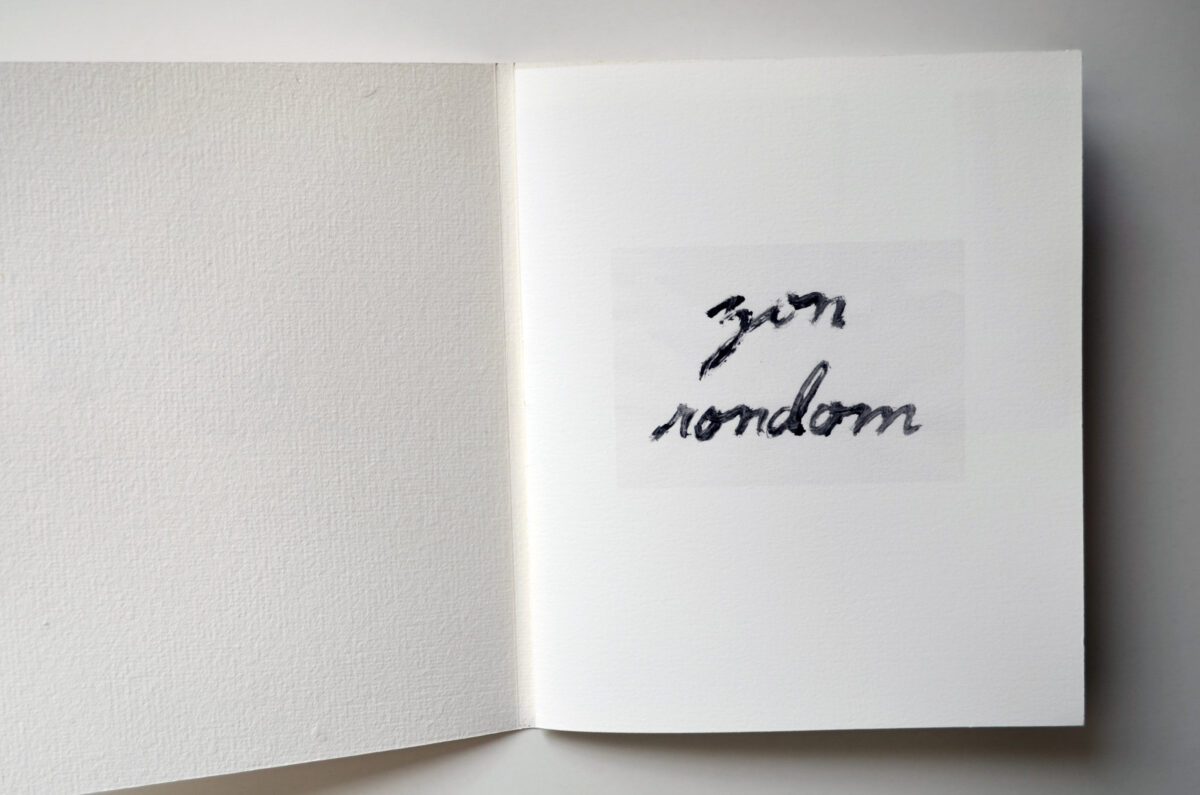 zon
rondom